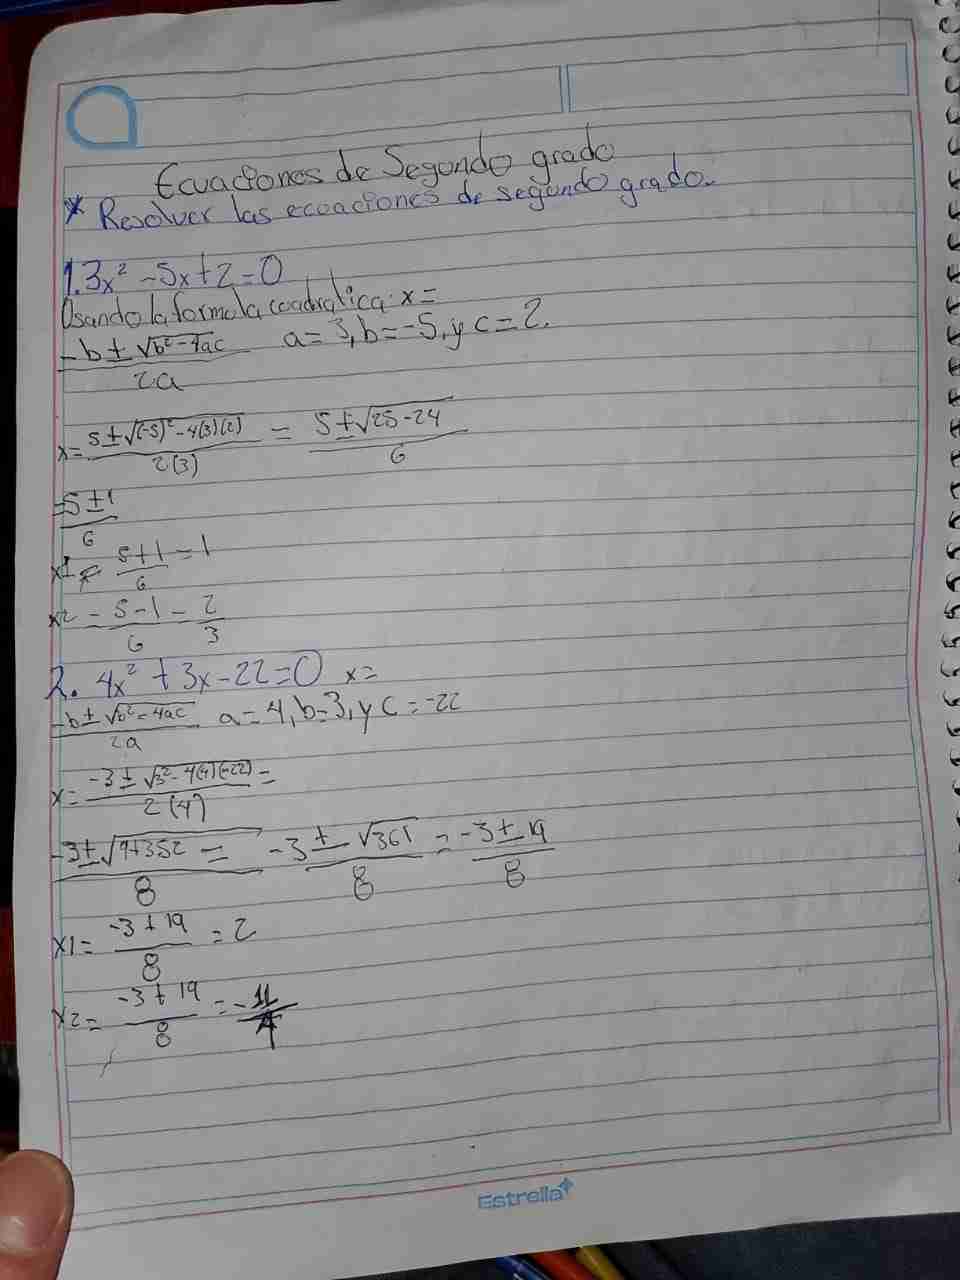 Ecuaciones de Segundo grado
* Resolver las ecuaciones de segundo grado.
1. 3x² - 5x + 2 = 0
Usando la formula cuadratica: x =
-b ± √b² - 4ac / 2a a = 3, b = -5, y c = 2.
x = 5 ± √(-5)² - 4(3)(2) / 2(3) = 5 ± √25 - 24 / 6
= 5 ± 1 / 6
x1 = 5 + 1 / 6 = 1
x2 = 5 - 1 / 6 - 2 / 3
2. 4x² + 3x - 22 = 0 x =
-b ± √b² - 4ac / 2a a = 4, b = 3, y c = -22
x = -3 ± √3² - 4(4)(-22) / 2(4) =
-3 ± √9 + 352 / 8 = -3 ± √361 / 8 = -3 ± 19 / 8
x1 = -3 + 19 / 8 = 2
x2 = -3 + 19 / 8 = - 11 / 4
Estrella